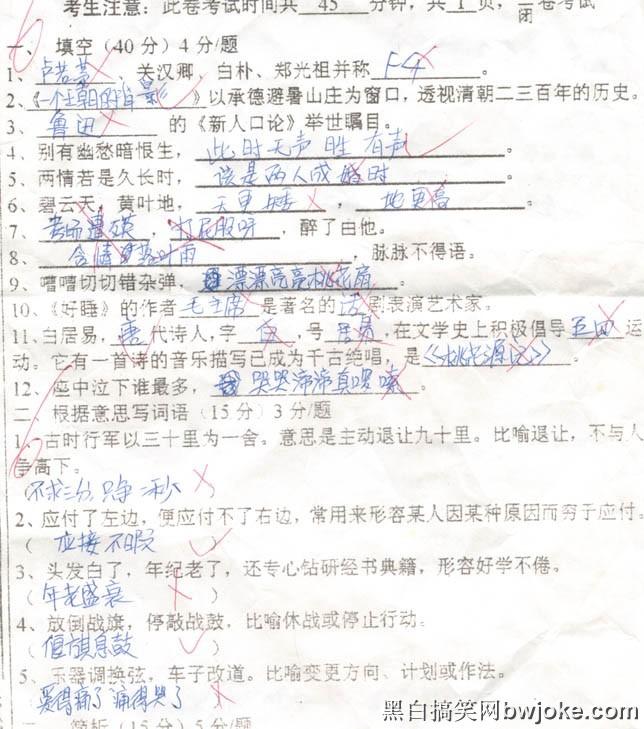 考生注意：此卷考试时间共 45 分钟，共 1 页，闭卷考试
一、填空（40分）4分/题
1、卢若慕，关汉卿，白朴、郑光祖并称 F4 。
2、《一个王朝的背影》以承德避暑山庄为窗口，透视清朝二三百年的历史。
3、鲁迅 的《新人口论》举世瞩目。
4、别有幽愁暗恨生，此时无声胜有声。
5、两情若是久长时，该是两人成婚时。
6、碧云天，黄叶地，天更矮，地更高。
7、考场遭殃，打屁股呀，醉了由他。
8、含情 叶雨，脉脉不得语。
9、嘈嘈切切错杂弹，漂漂亮亮桃花扇。
10、《好睡》的作者毛主席是著名的话剧表演艺术家。
11、白居易，唐代诗人，字白，号居易，在文学史上积极倡导五四运
动。它有一首诗的音乐描写已成为千古绝唱，是《桃花源记》。
12、座中泣下谁最多，哭哭啼啼真啰嗦。
二 根据意思写词语（15分）3分/题
1、古时行军以三十里为一舍。意思是主动退让九十里。比喻退让，不与人
争高下。
（不求三分，只争二秒）
2、应付了左边，便应付不了右边，常用来形容某人因某种原因而穷于应付。
（应接不暇）
3、头发白了，年纪老了，还专心钻研经书典籍，形容好学不倦。
（年老盛衰）
4、放倒战旗，停敲战鼓，比喻休战或停止行动。
（偃旗息鼓）
5、乐器调换弦，车子改道。比喻变更方向、计划或作法。
哭得痛了 痛得哭了）
简析（15分）5分/题
黑白搞笑网bwjoke.com